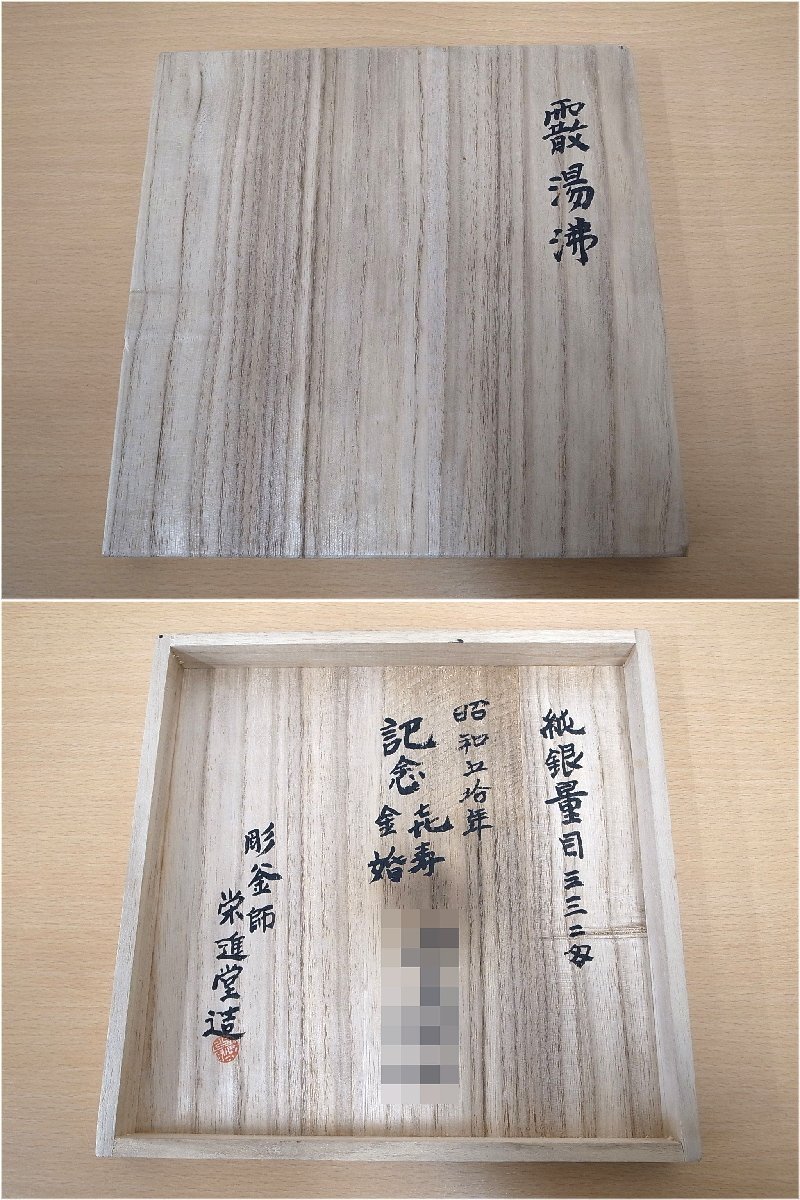 霰湯沸
純銀量目三三二匁
昭和五拾年
記念
㐂寿
金婚
彫釜師
栄進堂造